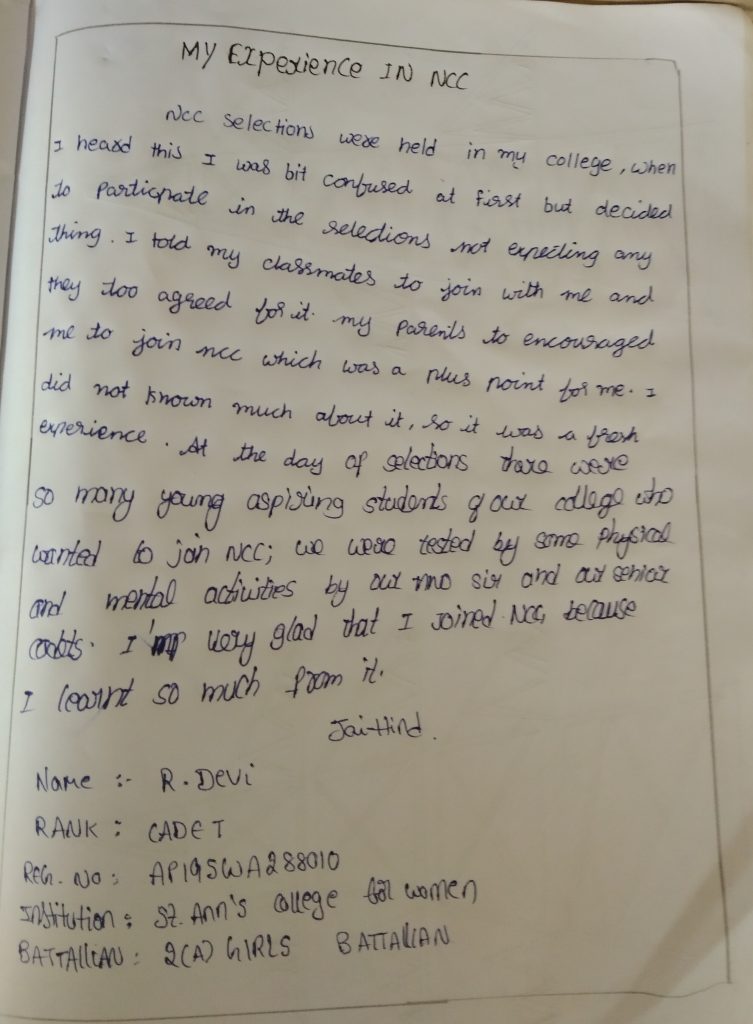 MY EXperience IN NCC
Ncc selections were held in my college, when
I heard this I was bit confused at first but decided
to participate in the selections not expecting any
thing. I told my classmates to join with me and
they too agreed for it. my parents to encouraged
me to join ncc which was a plus point for me. I
did not known much about it, so it was a fresh
experience. At the day of selections there were
so many young aspiring students of our college who
wanted to join NCC; we were tested by some physical
and mental activities by our ANO sir and our senior
cadets. I'm very glad that I joined NCC, because
I learnt so much from it.
Jai-Hind.
Name :- R. Devi
RANK : CADET
REG. NO : AP19SWA288010
Institution : St. Ann's college for women
BATTALIAN : 2(A) GIRLS BATTALIAN